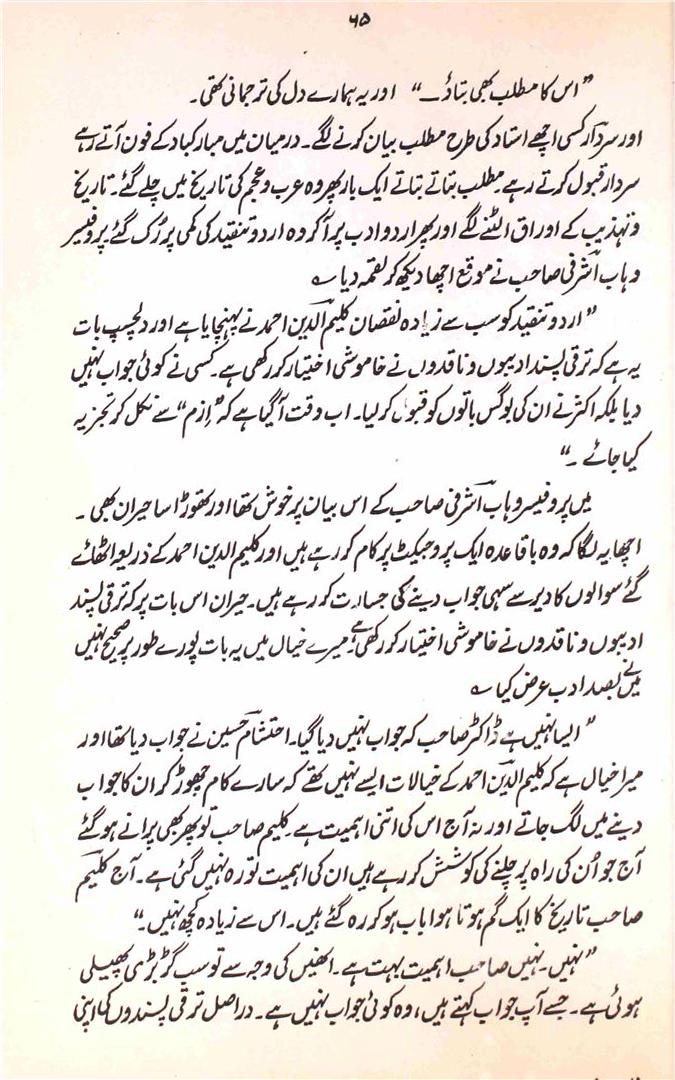 ۶۵
”اس کا مطلب بھی بتاؤ ــ“ اور یہ ہمارے دل کی ترجمانی تھی۔
اور سردار کسی اچھے استاد کی طرح مطلب بیان کرنے لگے۔ درمیان میں مبارکباد کے فون آتے رہے
سردار قبول کرتے رہے۔ مطلب بتاتے بتاتے ایک بار پھر وہ عرب و عجم کی تاریخ میں چلے گئے۔ تاریخ
و تہذیب کے اوراق الٹنے لگے اور پھر اردو ادب پر آکر وہ اردو تنقید کی کمی پر رُک گئے۔ پروفیسر
وہاب اشرفی صاحب نے موقع اچھا دیکھ کر لقمہ دیا ؎
”اردو تنقید کو سب سے زیادہ نقصان کلیم الدین احمد نے پہنچایا ہے اور دلچسپ بات
یہ ہے کہ ترقی پسند ادیبوں و ناقدوں نے خاموشی اختیار کر رکھی ہے۔ کسی نے کوئی جواب نہیں
دیا بلکہ اکثر نے ان کی بوگس باتوں کو قبول کر لیا۔ اب وقت آگیا ہے کہ ”اِزم“ سے نکل کر تجزیہ
کیا جائے ۔“
میں پروفیسر وہاب اشرفی صاحب کے اس بیان پر خوش تھا اور تھوڑا سا حیران بھی ۔
اچھا یہ لگا کہ وہ باقاعدہ ایک پروجیکٹ پر کام کر رہے ہیں اور کلیم الدین احمد کے ذریعہ اٹھائے
گئے سوالوں کا دیر سے سہی جواب دینے کی جسارت کر رہے ہیں۔ حیران اس بات پر کہ ترقی پسند
ادیبوں و ناقدوں نے خاموشی اختیار کر رکھی ہے، میرے خیال میں یہ بات پورے طور پر صحیح نہیں
میں نے بصد ادب عرض کیا ؎
”ایسا نہیں ہے ڈاکٹر صاحب کہ جواب نہیں دیا گیا۔ احتشام حسین نے جواب دیا تھا اور
میرا خیال ہے کہ کلیم الدین احمد کے خیالات ایسے نہیں تھے کہ سارے کام چھوڑ کر ان کا جواب
دینے میں لگ جاتے اور نہ آج اس کی اتنی اہمیت ہے۔ کلیم صاحب تو پھر بھی پرانے ہو گئے
آج جو اُن کی راہ پر چلنے کی کوشش کر رہے ہیں ان کی اہمیت تو رہ نہیں گئی ہے۔ آج کلیم
صاحب تاریخ کا ایک گم ہوتا ہوا باب ہو کر رہ گئے ہیں۔ اس سے زیادہ کچھ نہیں۔“
”نہیں۔ نہیں صاحب اہمیت بہت ہے۔ انھیں کی وجہ سے تو سب گڑبڑی پھیلی
ہوئی ہے۔ جسے آپ جواب کہتے ہیں، وہ کوئی جواب نہیں ہے۔ دراصل ترقی پسندوں کا اپنی